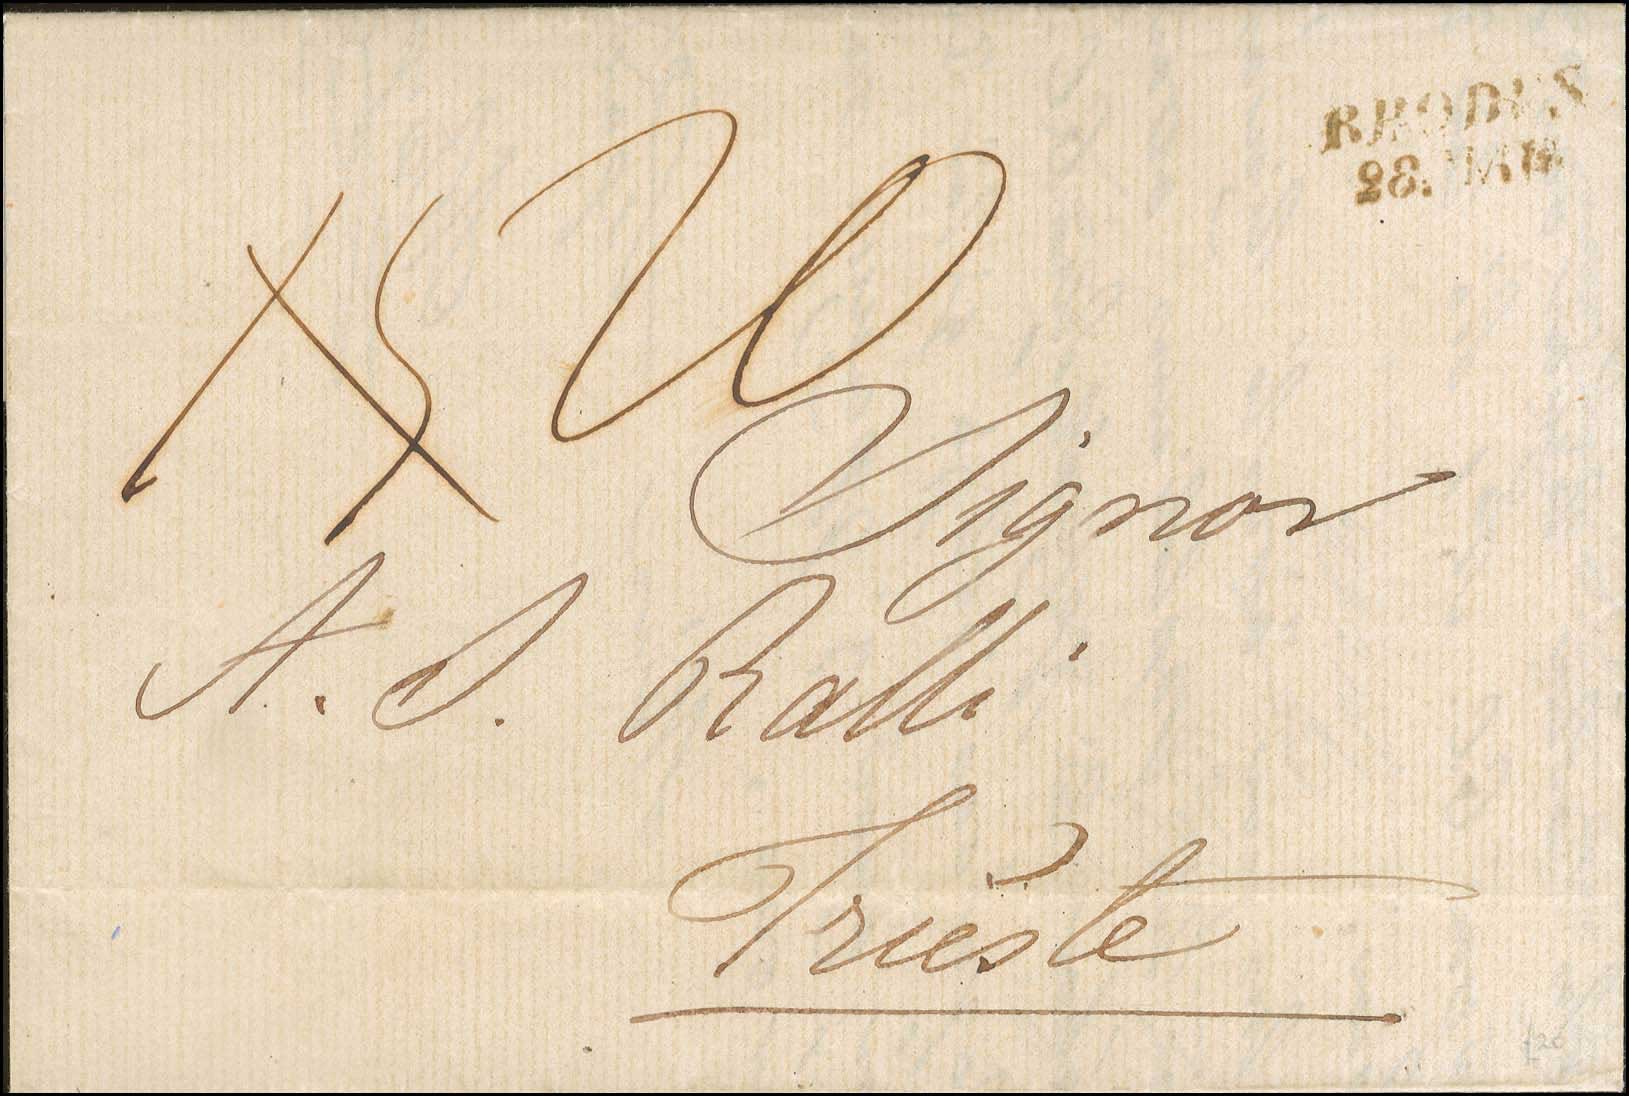 RHODUS
28. MAR.
Signor
A. S. Ralli
Trieste
£20